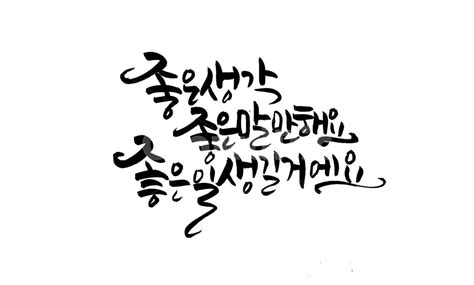 좋은생각
좋은말만해요
좋은일생길거에요